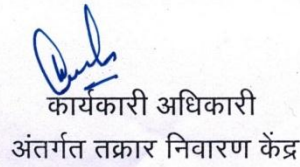 कार्यकारी अधिकारी
अंतर्गत तक्रार निवारण केंद्र